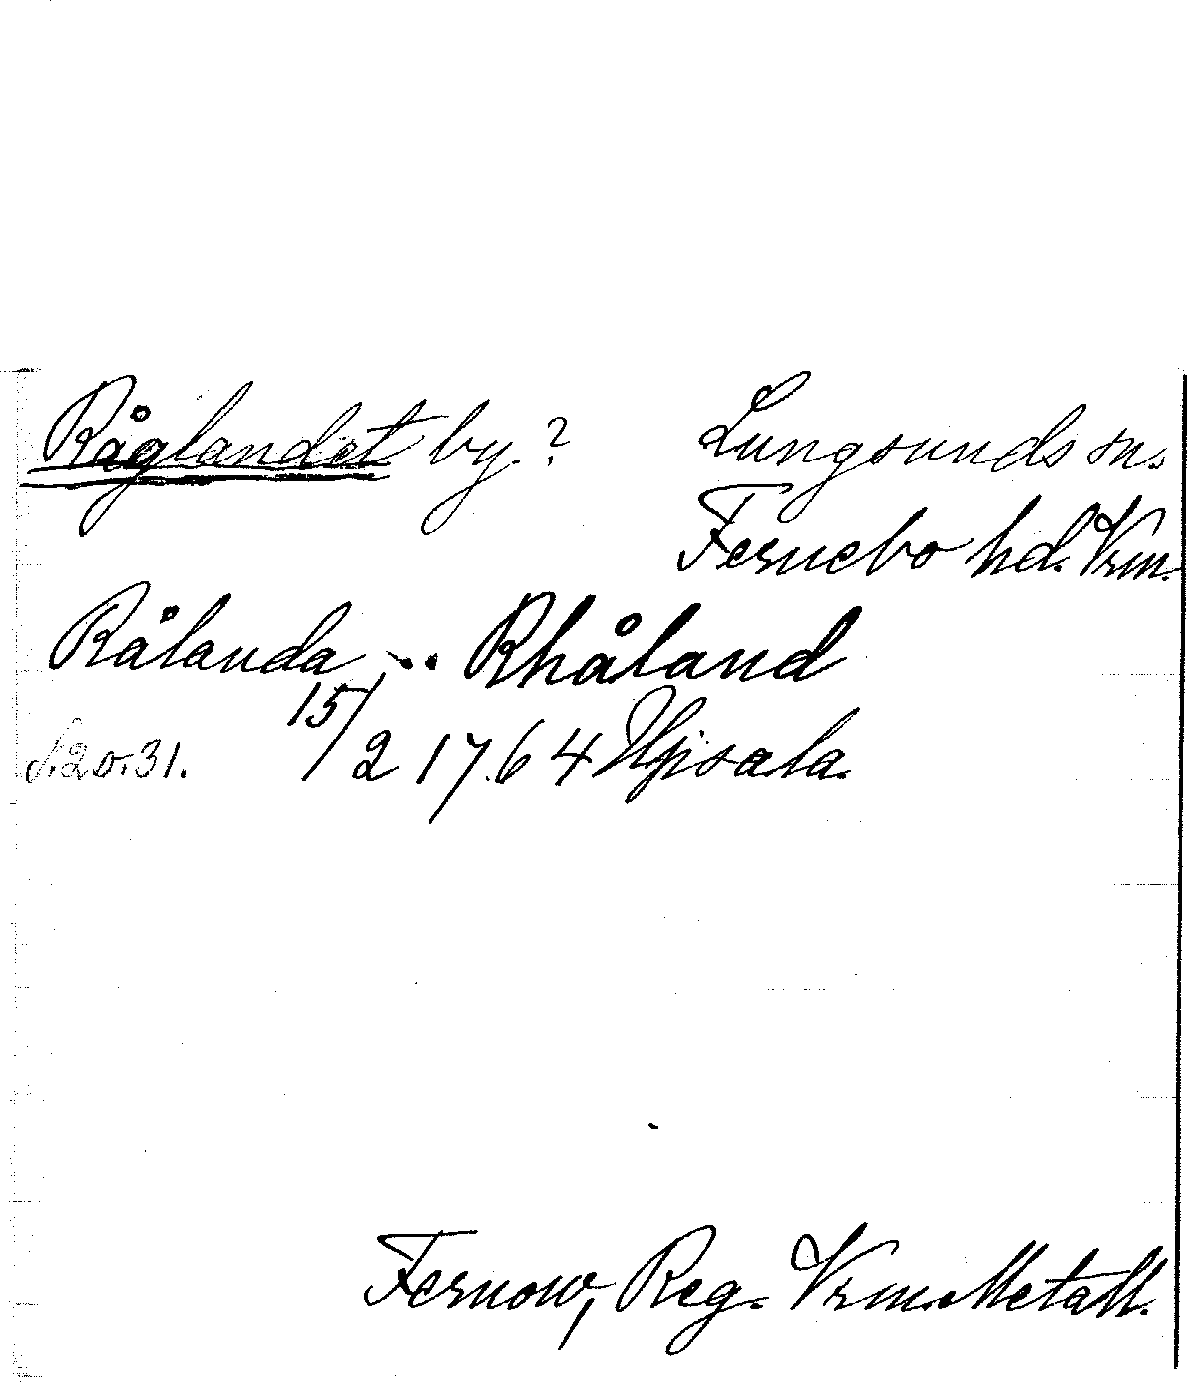 Råglandet by? Lungsunds sn.
Fernebo hd. Vrm.
Rålanda .. Rhåland
S. 20.31. 15/2 1764 Upsala.
Fernow, Reg. Vrm. Metall.